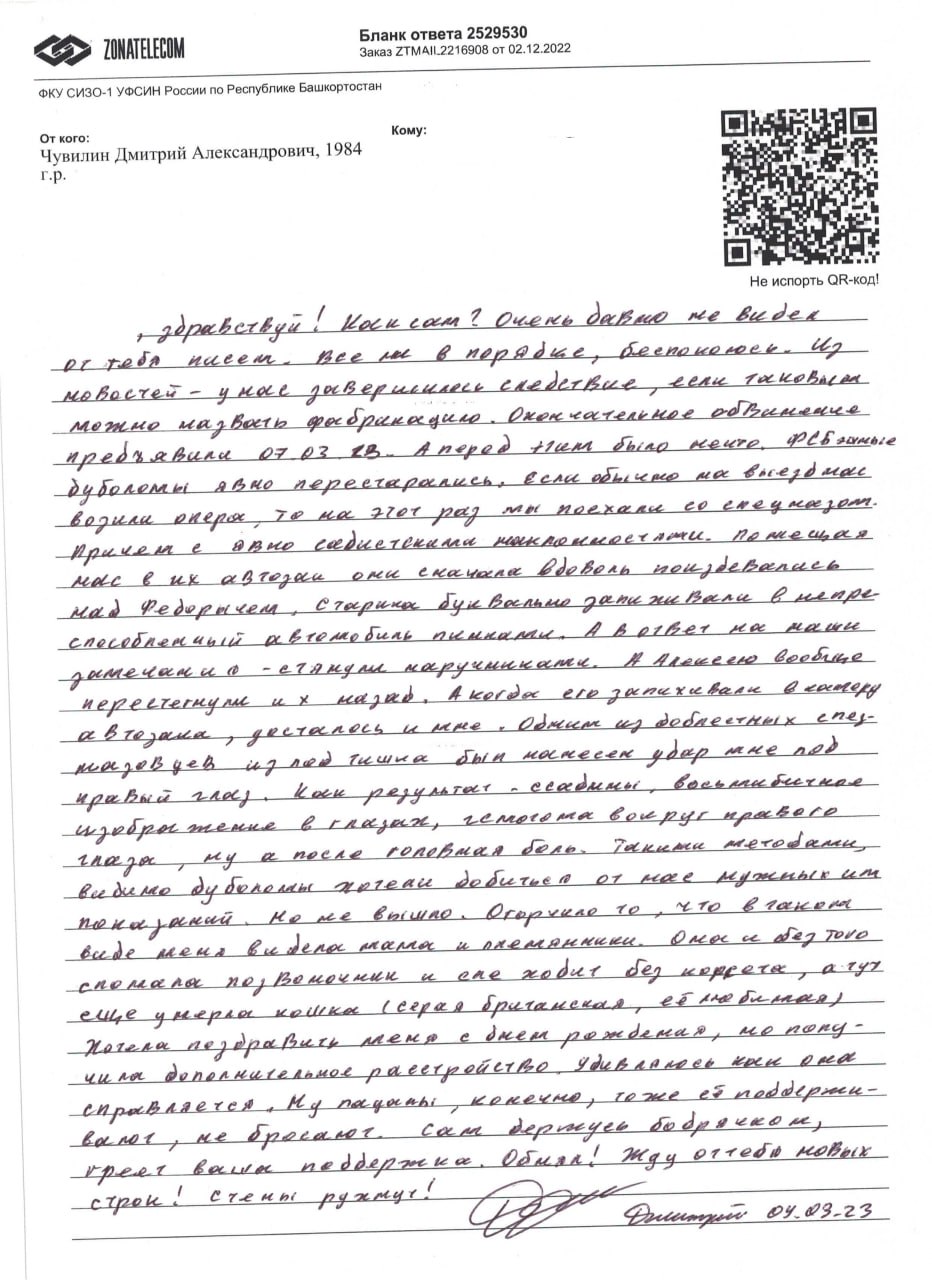 ZONATELECOM
Бланк ответа 2529530
Заказ ZTMAIL2216908 от 02.12.2022
ФКУ СИЗО-1 УФСИН России по Республике Башкортостан
От кого:
Кому:
Чувилин Дмитрий Александрович, 1984
г.р.
Не испорть QR-код!
, здравствуй! Как сам? Очень давно не видел
от тебя писем. Все ли в порядке, беспокоюсь. Из
новостей – у нас завершилось следствие, если таковым
можно назвать фабрикацию. Окончательное обвинение
предъявили 07.03.23. А перед этим было нечто. ФСБэшные
дуболомы явно перестарались, если обычно на выезд нас
возили опера, то на этот раз мы поехали со спецназом.
Причем с явно садистскими наклонностями. Помещая
нас в их автозак они сначала вдоволь поиздевались
над Федорычем. Старика буквально запихивали в непри-
способленный автомобиль пинками. А в ответ на наши
замечания – стянули наручниками. А Алексею вообще
перестегнули их назад. А когда его запихивали в камеру
автозака, досталось и мне. Одним из доблестных спец-
назовцев из под тишка был нанесен удар мне под
правый глаз. Как результат – ссадины, восьмибитное
изображение в глазах, вокруг правого
глаза, ну а после головная боль. Такими методами,
видимо дуболомы хотели добиться от нас нужных им
показаний. Но не вышло. Огорчило то, что в таком
виде меня видела мама и племянники. Она и без того
сломала позвоночник и еле ходит без корсета, а тут
еще умерла кошка (серая британская, её любимая)
Хотела поздравить меня с днем рождения, но полу-
чила дополнительное расстройство. Удивляюсь как она
справляется. Ну пацаны, конечно, тоже её поддержи-
вают, не бросают. Сам держусь бодрячком,
греет ваша поддержка. Обнял! Жду от тебя новых
строк! Стены рухнут!
Дмитрий 09.03.23